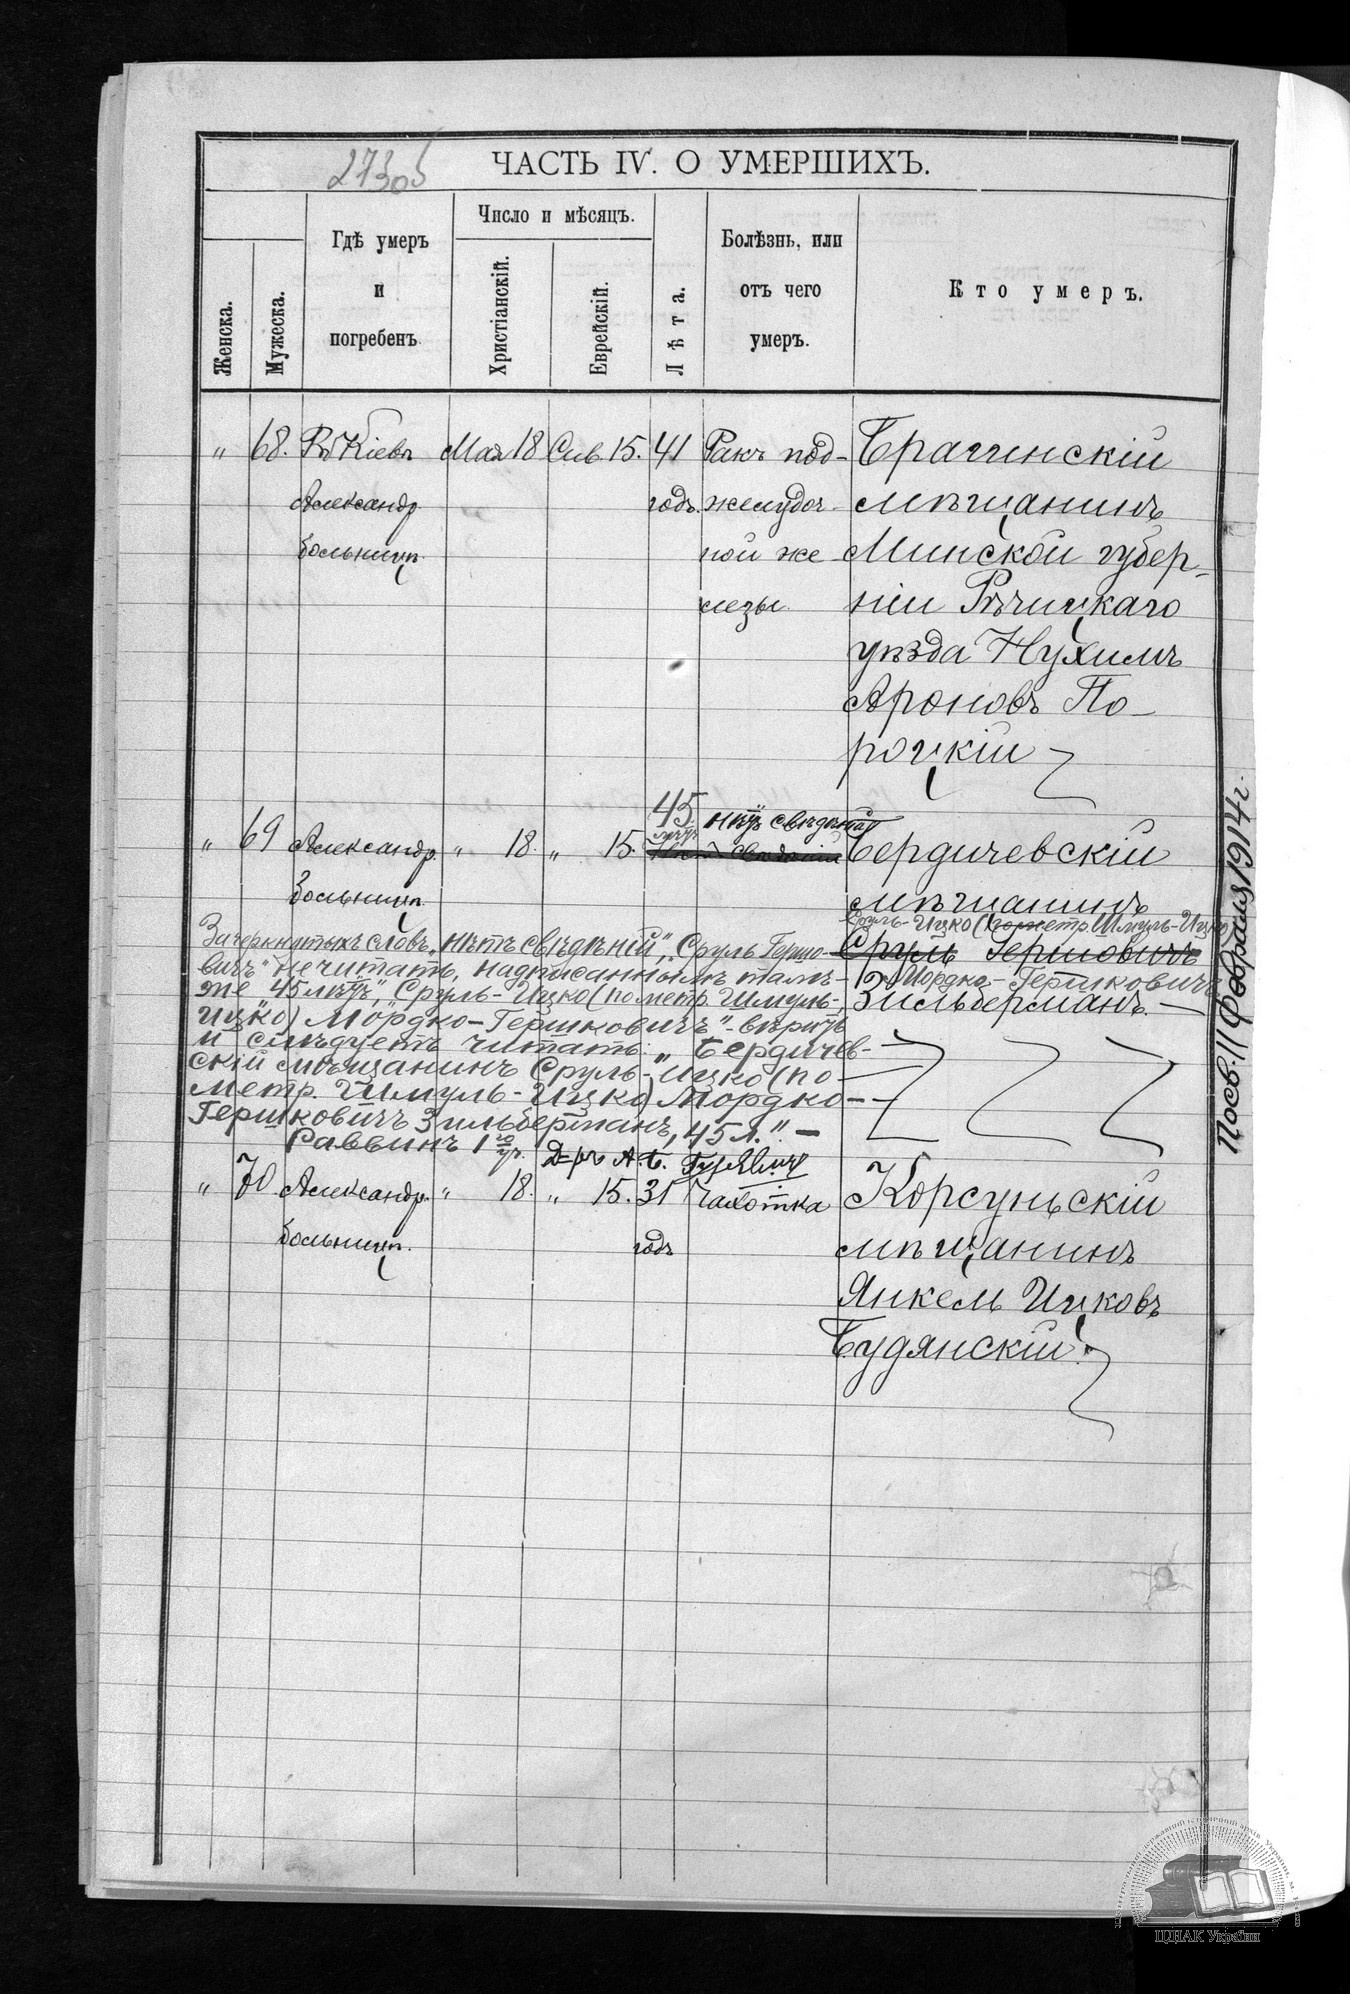 273об
ЧАСТЬ IV. О УМЕРШИХЪ.
Женска.
Мужеска.
Гдѣ умеръ
и
погребенъ
Число и мѣсяцъ.
Христіанскій.
Еврейскій.
Лѣта.
Болѣзнь, или
отъ чего
умеръ.
Кто умеръ.
" 68. Въ Кіевѣ Мая 18 Сив. 15. 41 Ракъ под- Брагинскій
Александр. годъ. желудоч- мѣщанинъ
больниц. ной же- Минской губер-
лезы. ніи Рѣчицкаго
уѣзда Нухимъ
Ароновъ По-
роцкій
45 нѣтъ свѣдѣній
лѣтъ
" 69 Александр. " 18. " 15. Нѣтъ свѣдѣній Бердичевскій
больниц. мѣщанинъ
Сруль-Ицко (по метр. Шмуль-Ицко)
Зачеркнутыхъ словъ "нѣтъ свѣдѣній", "Сруль Гершо- Сруль Гершовичъ
вичъ" не читать, надписаннымъ тамъ- Мордко-Гершковичъ
же "45 лѣтъ", "Сруль-Ицко (по метр. Шмуль- Зильберманъ.
Ицко) Мордко-Гершковичъ" - вѣрить
и слѣдуетъ читать: "Бердичев-
скій мѣщанинъ Сруль-Ицко (по
метр. Шмуль-Ицко) Мордко-
Гершковичъ Зильберманъ, 45 л." —
Раввинъ 1го уч. Д-ръ А. Б. Гуревичъ
" 70 Александр. " 18. " 15. 31 Чахотка Корсуньскій
больниц. годъ мѣщанинъ
Янкель Ицковъ
Будянскій.
11 Февраля 1914 г.
ЦДІАК України